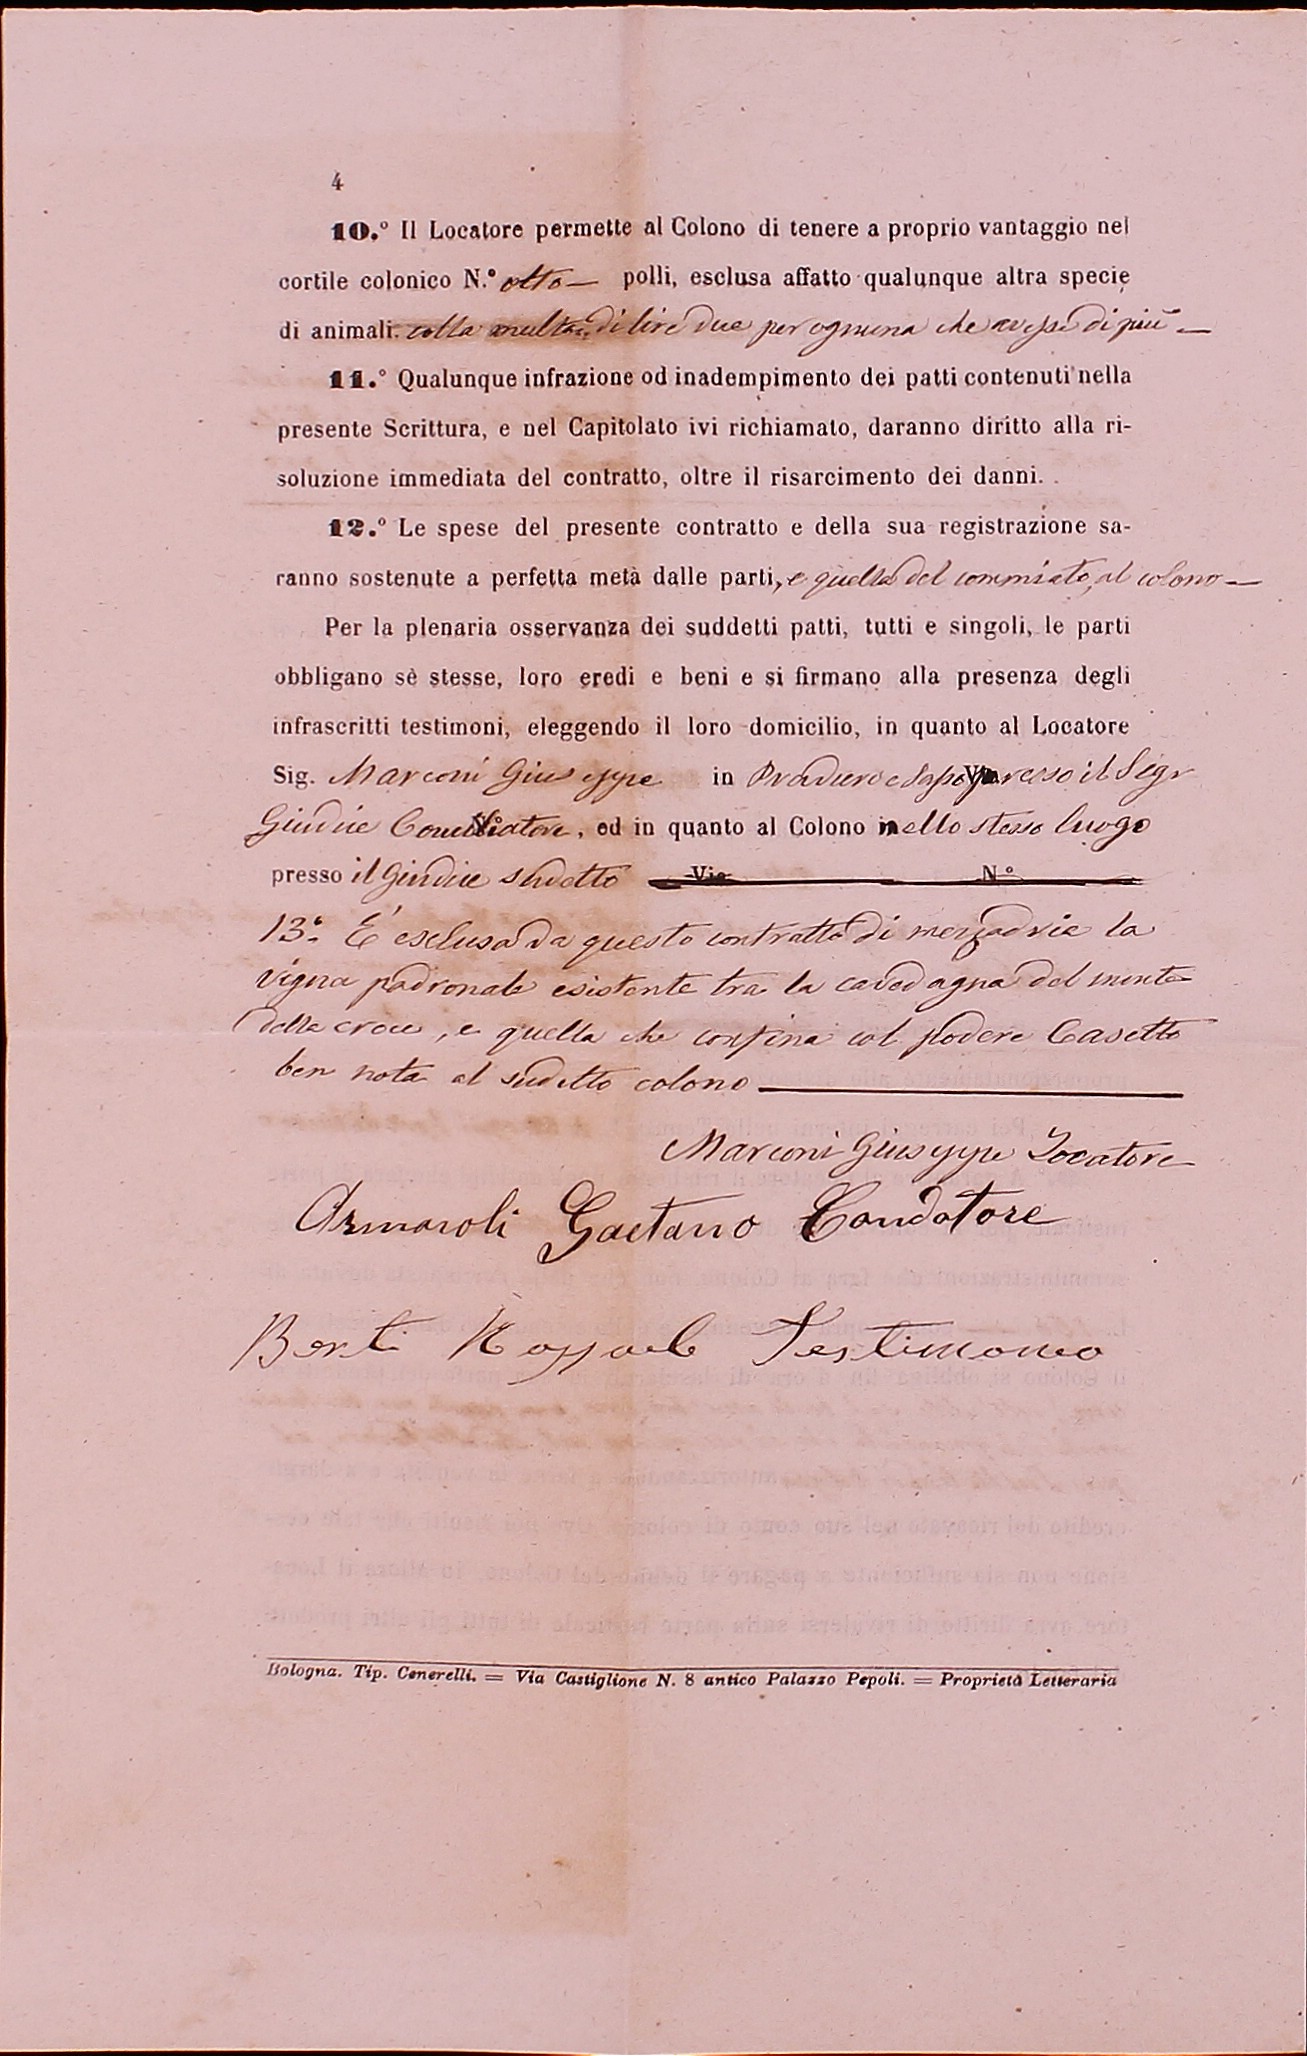 4
10.° Il Locatore permette al Colono di tenere a proprio vantaggio nel
cortile colonico N.° otto — polli, esclusa affatto qualunque altra specie
di animali. colla multa di lire due per ognuna che avesse di più —
11.° Qualunque infrazione od inadempimento dei patti contenuti nella
presente Scrittura, e nel Capitolato ivi richiamato, daranno diritto alla ri-
soluzione immediata del contratto, oltre il risarcimento dei danni.
12.° Le spese del presente contratto e della sua registrazione sa-
ranno sostenute a perfetta metà dalle parti, e quella del commiato, al colono —
Per la plenaria osservanza dei suddetti patti, tutti e singoli, le parti
obbligano sè stesse, loro eredi e beni e si firmano alla presenza degli
infrascritti testimoni, eleggendo il loro domicilio, in quanto al Locatore
Sig. Marconi Giuseppe in Praduro e Sasso presso il Sigr
Giudice Conciliatore, ed in quanto al Colono nello stesso luogo
presso il Giudice sudetto Via N.°
13.° E' esclusa da questo contratto di mezzadria la
vigna padronale esistente tra la cavedagna del monte
della croce, e quella che confina col podere Casetto
ben nota al sudetto colono
Marconi Giuseppe Locatore
Armaroli Gaetano Condotore
Berti Raffaele Testimonio
Bologna. Tip. Cenerelli. = Via Castiglione N. 8 antico Palazzo Pepoli. = Proprietà Letteraria